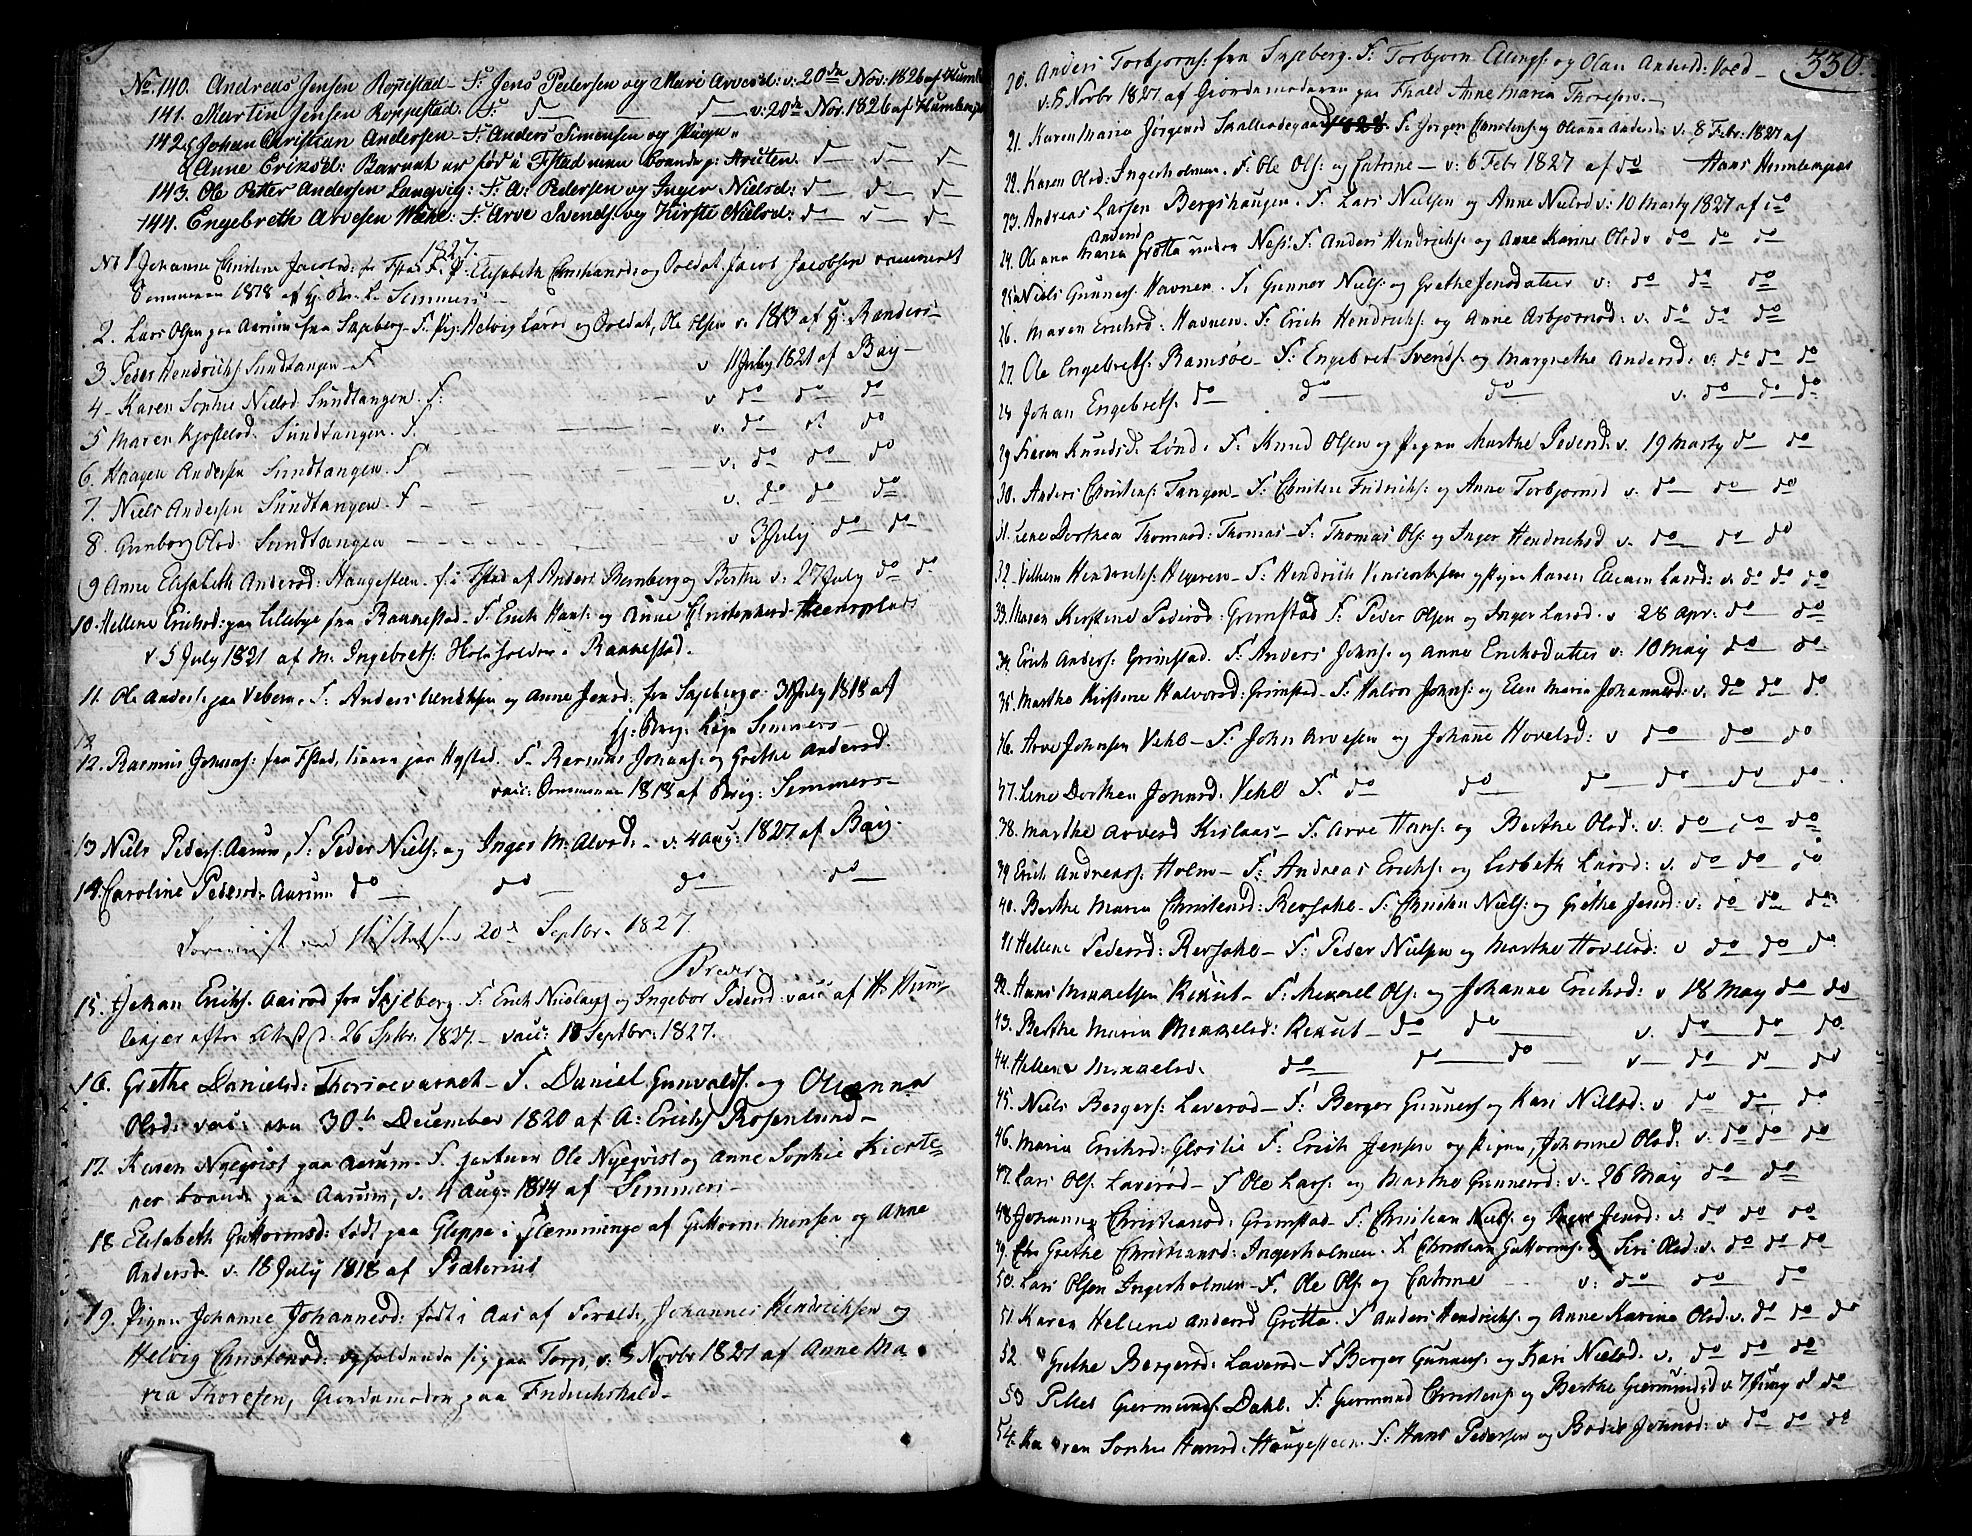 No 140. Andreas Jensen Roppestad – F: Jens Pedersen og Mari Arvesd: v: 20de Nov: 1826 af Humle
141. Martin Jensen Roppestad. F: do do v: 20de Nov. 1826 af Humlekjær
142. Johan Christian Andersen F: Anders Simensen og Pigen
Anne Eriksd: Barnet er født i Fstad men boende p: Houten. do do do
143. Ole Petter Andersen Langvig: F: A: Pedersen og Inger Nielsd: do do do
144. Engebreth Arvesen Wæhl: F: Arve Svends: og Kirste Nielsd: do do do
1827.
No 1. Johanne Christine Jacobsd: fra Fstad F. P: Elisabeth Christiansd: og Soldat Jacob Jacobsen
Sommeren 1818 af Simmers –
2. Lars Olsen paa Aarum fra Skjeberg – F. Pig: Helvig Larsd og Soldat, Ole Olsen v. 1813 af Randers –
3 Peder Hendrichs: Sundtangen – F v 11 July 1821 af Bay –
4 – Karen Sophie Nielsd Sundtangen. F: v do do do
5 Maren Kjostelsd. Sundtangen. F. v: do do do
6. Haagen Andersen Sundtangen. F v. do do do
7. Niels Andersen Sundtangen. F v. do do do
8. Gunbor Olsd. Sundtangen v 3 July do do
9 Anne Elisabeth Andersd: Haugesteen – f. i Fstad af Anders Bernberg og Berthe v. 27 July do do
10. Hellene Erichsd: paa Lillebye fra Rannestad – F. Erich Hans: og Anne Christophersd Heensplads
v 5 July 1821 af M. Ingebrets: Holmsolder i Rannestad.
11. Ole Anders: paa Vebern. F. Anders Ulrichsen og Anne Jensd: fra Skjeberg v. 31 July 1818 af
Simmers –
12
12. Rasmus Johans: fra Fstad, tiener paa Hystad. F – Rasmus Johans: og Grethe Andersd.
vacc: Sommeren 1818 af Simmers –
13 Niels Peders: Aarum, F: Peder Niels: og Inger M. Alvsd. – v. 4 Aug: 1827 af Bay.
14. Caroline Pedersd: Aarum do do do do
20de Septbr. 1827.
Breder
15. Johan Erichs: Aaserød fra Skjeberg. F. Erich Nicolays: og Ingebor Pedersd: vacc af H: Hum-
lekjær efter Attest d. 26 Septbr. 1827. – vacc: 18 Septbr: 1827.
16. Grethe Danielsd: Thorsoevarnet – F. Daniel Gunvalds: og Oleanna
Olsd: vacc: den 30te December 1820 af A: Erichs Rosenlund –
17. Karen Nyeqvist paa Aarum – F. Ole Nyeqvist og Anne Sophie Kierste-
ner boende paa Aarum, v. 4 Aug: 1814 af Simmers –
18 Elisabeth Guttormsd: født paa Gleppe i Glemminge af Guttorm Monsen og Anne
Andersd. v. 18 July 1818 af Præterius
19. Pigen Johanne Johannesd: født i Aas af Forældr. Johannes Hendrichsen og
Helvig Christensd: opholdende sig paa Torp, v. 8 Novbr 1821 af Anne Ma-
ria Thoresen, Giordemoder paa Fridrichshald –
330.
20. Anders Torbjørns: fra Skjeberg. F. Torbjørn Ellings: og Olau Andersd: Vold –
v. 8 Novbr 1821 af Giordemoderen paa Fhald Anne Maria Thoresen. –
21. Karen Maria Jørgensd Skallerødegaard 1828. F. Jørgen Christens: og Oleana Andersd: v. 8 Febr: 1827 af
22. Karen Olsd: Ingerholmen. F: Ole Ols: og Catrine – v: 6 Febr 1827 af do Hans Humlekjær
23. Andreas Larsen Bergshaugen. F. Lars Nielsen og Anne Nielsd v: 10 Marty 1827 af do
24. Oleana Maria Andersd Grotta under Næs: F. Anders Hendrichs: og Anne Karine Olsd v do do do
25. Niels Gunners: Havnen. F. Gunner Niels: og Grethe Jensdatter v: do do do
26. Maren Erichsd: Havnen. F. Erich Hendrichs: og Anne Asbjørnsd: v. do do do
27. Ole Engebrets: Ramsøe – F. Engebret Svends: og Margrethe Andersd: v: do do do
28 Johan Engebrets: do do do v. do do do
29 Karen Knudsd. Lønd: F. Knud Olsen og Pigen Marthe Pedersd. v. 19 Marty do do
30. Anders Christens: Tangen – F. Christen Fridrichs: og Anne Torbjørnsd v. do do do
31. Lene Dorthea Thomasd: Thomas – F. Thomas Ols: og Inger Hendrichsd v. do do do
32. Velhem Hendrichs: – F. Hendrich og Pigen Karen Larsd: v. do do do
33. Maren Kirstene Pedersd: Grimstad F. Peder Olsen og Inger Larsd. v 28 Apr: do do
34. Erich Anders: Grimstad. F. Anders Johns: og Anne Erichsdatter v. 10 May do do
35. Marthe Kirstene Halvorsd: Grimstad – F. Halvor Johns: og Elen Maria Johannesd: v. do do do
36. Arve Johnsen Vehl – F. John Arvesen og Johanne Hovelsd: v do do do
37. Lene Dorthea Johnsd. Vehl F. do do do do do do
38. Marthe Arvesd Kislaas – F. Arve Hans: og Berthe Olsd: v. do do do
39 Erich Andreass: Holm – F. Andreas Erichs: og Lisbeth Larsd: v. do do do
40. Berthe Maria Christensd: Rersohl – F. Christen Niels: og Grethe Jensd: v: do do do
41 Hellene Pedersd: Rersohl – F. Peder Nielsen og Marthe Hovelsd: v do do do
42. Hans Mikkelsen Rekiut – F. Mikkel Ols: og Johanne Erichsd: v 18 May do do
43. Berthe Maria Mikkelsd: Rekiut – do do v. do do do
44. Hellene Mikkelsd. do do do v – do do do
45. Niels Bergers: Laverød – F. Berger Gunners: og Kari Nielsd: v. do do do
46. Maria Erichsd: Glosli F. Erich Jensen og Pigen, Johanne Olsd. v. do do do
47. Lars Ols. Laverød – F Ole Lars: og Marthe Gunnersd: v. 26 May do do
48. Johanne Christiansd: Grimstad – F. Christian Niels: og Inger Jensd: v. do do do
49. Grethe Christiansd: Ingerholmen. F. Christian Guttorms: og Siri Olsd. v. do do do
50. Lars Olsen Ingerholmen – F. Ole Ols. og Catrine v: do do do
51. Karen Helene Andersd Grotta. F Anders Hendrichs: og Anne Karine Olsd. v. do do do
52. Grethe Bergersd: Laverød – F Berger Gunners: og Kari Nielsd. v. do do do
53 Pelles Giermunds: Dahl. F. Giermund Christens: og Berthe Giermundsd v. 7 Juny do do
54. Karen Sophie Hansd: Haugesteen. F. Hans Pedersen og Bodil Johnsd: v. do do do